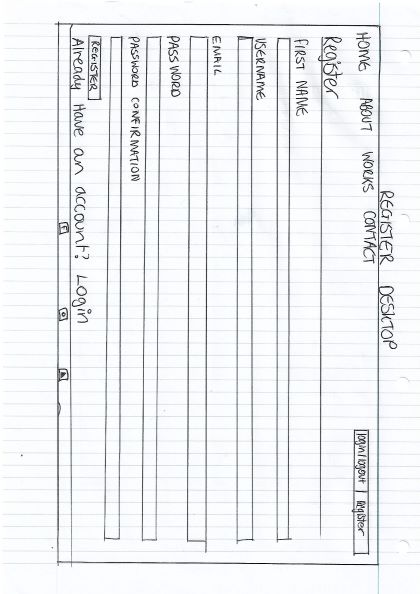 REGISTER DESKTOP
HOME ABOUT WORKS CONTACT
login/logout | Register
Register
FIRST NAME
USERNAME
EMAIL
PASSWORD
PASSWORD CONFIRMATION
REGISTER
Already Have an account? Login